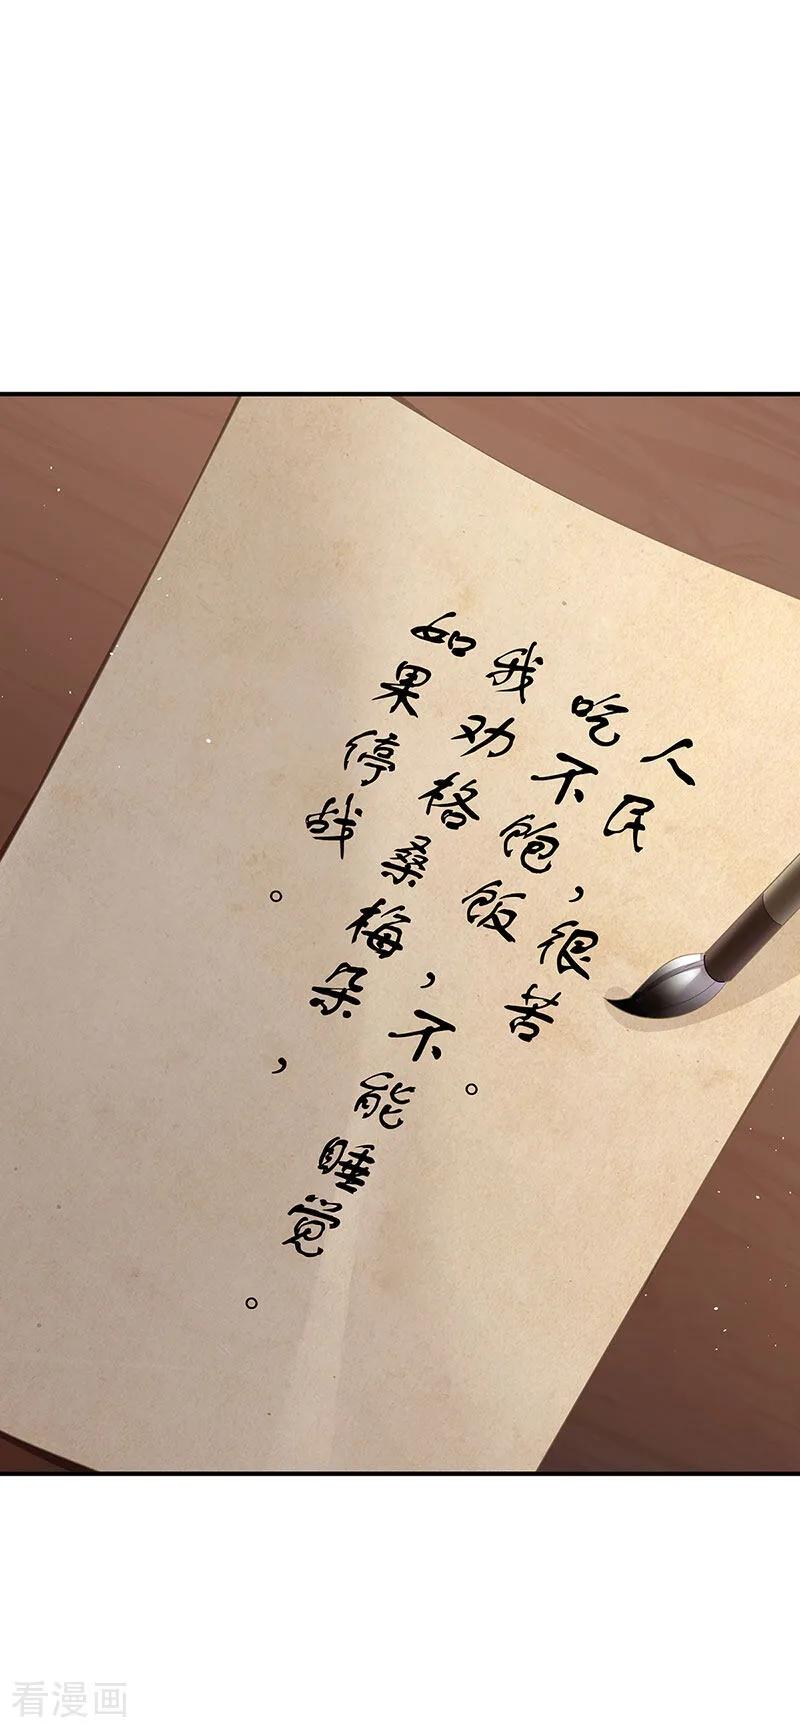 人民，很苦。
吃不饱饭，不能睡觉。
我劝格桑梅朵，
如果停战。
看漫画